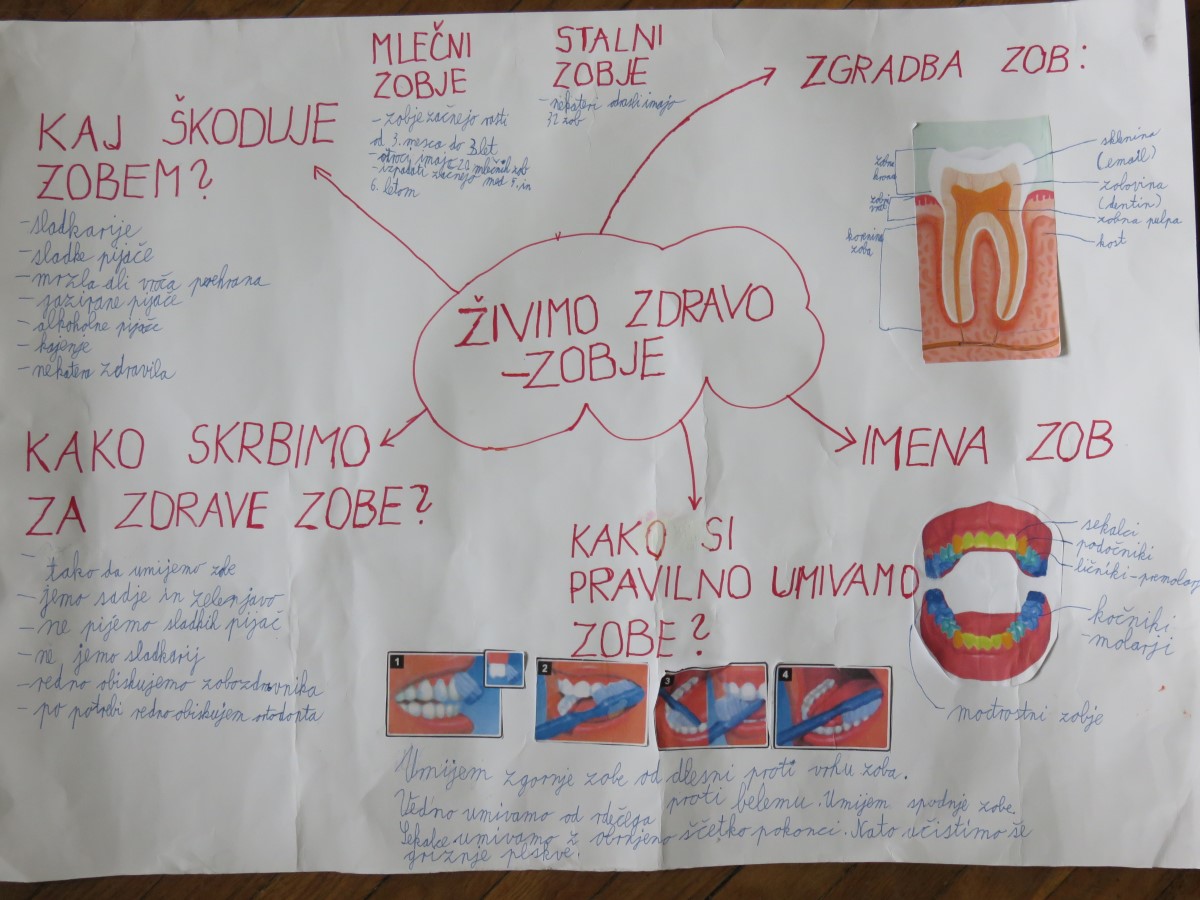 MLEČNI
ZOBJE
- zobje začnejo rasti
od 3. mesca do 3 let
- otroci imajo 20 mlečnih zob
- izpadati začnejo med 5. in
6. letom
STALNI
ZOBJE
- nekateri odrasli imajo
32 zob
ZGRADBA ZOB:
zobna
krona
zobni
vrat
korenina
zoba
sklenina
(email)
zobovina
(dentin)
zobna pulpa
kost
KAJ ŠKODUJE
ZOBEM?
- sladkarije
- sladke pijače
- mrzla ali vroča prehrana
- gazirane pijače
- alkoholne pijače
- kajenje
- nekatera zdravila
ŽIVIMO ZDRAVO
-ZOBJE
KAKO SKRBIMO
ZA ZDRAVE ZOBE?
-
tako da umijemo zobe
- jemo sadje in zelenjavo
- ne pijemo sladkih pijač
- ne jemo sladkarij
- redno obiskujemo zobozdravnika
- po potrebi redno obiskujem ortodonta
IMENA ZOB
sekalci
podočniki
ličniki-premolarj
kočniki
-molarji
modrostni zobje
KAKO SI
PRAVILNO UMIVAMO
ZOBE?
1
2
3
4
Umijem zgornje zobe od dlesni proti vrhu zoba.
Vedno umivamo od rdečega proti belemu. Umijem spodnje zobe.
Sekalce umivamo z obrnjeno ščetko pokonci. Nato učistimo še
griznje ploskve.